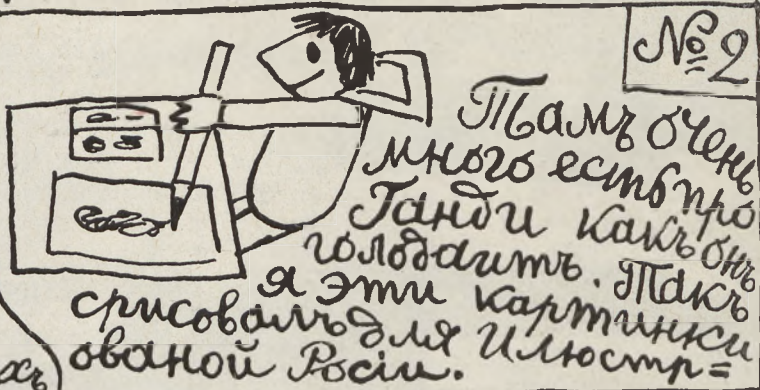 №2
Тамъ очень
много есть про
Ганди какъ онъ
голодаитъ. Такъ
я эти картинки
срисовалъ для Илюстр=
ованой Росіи.
хъ